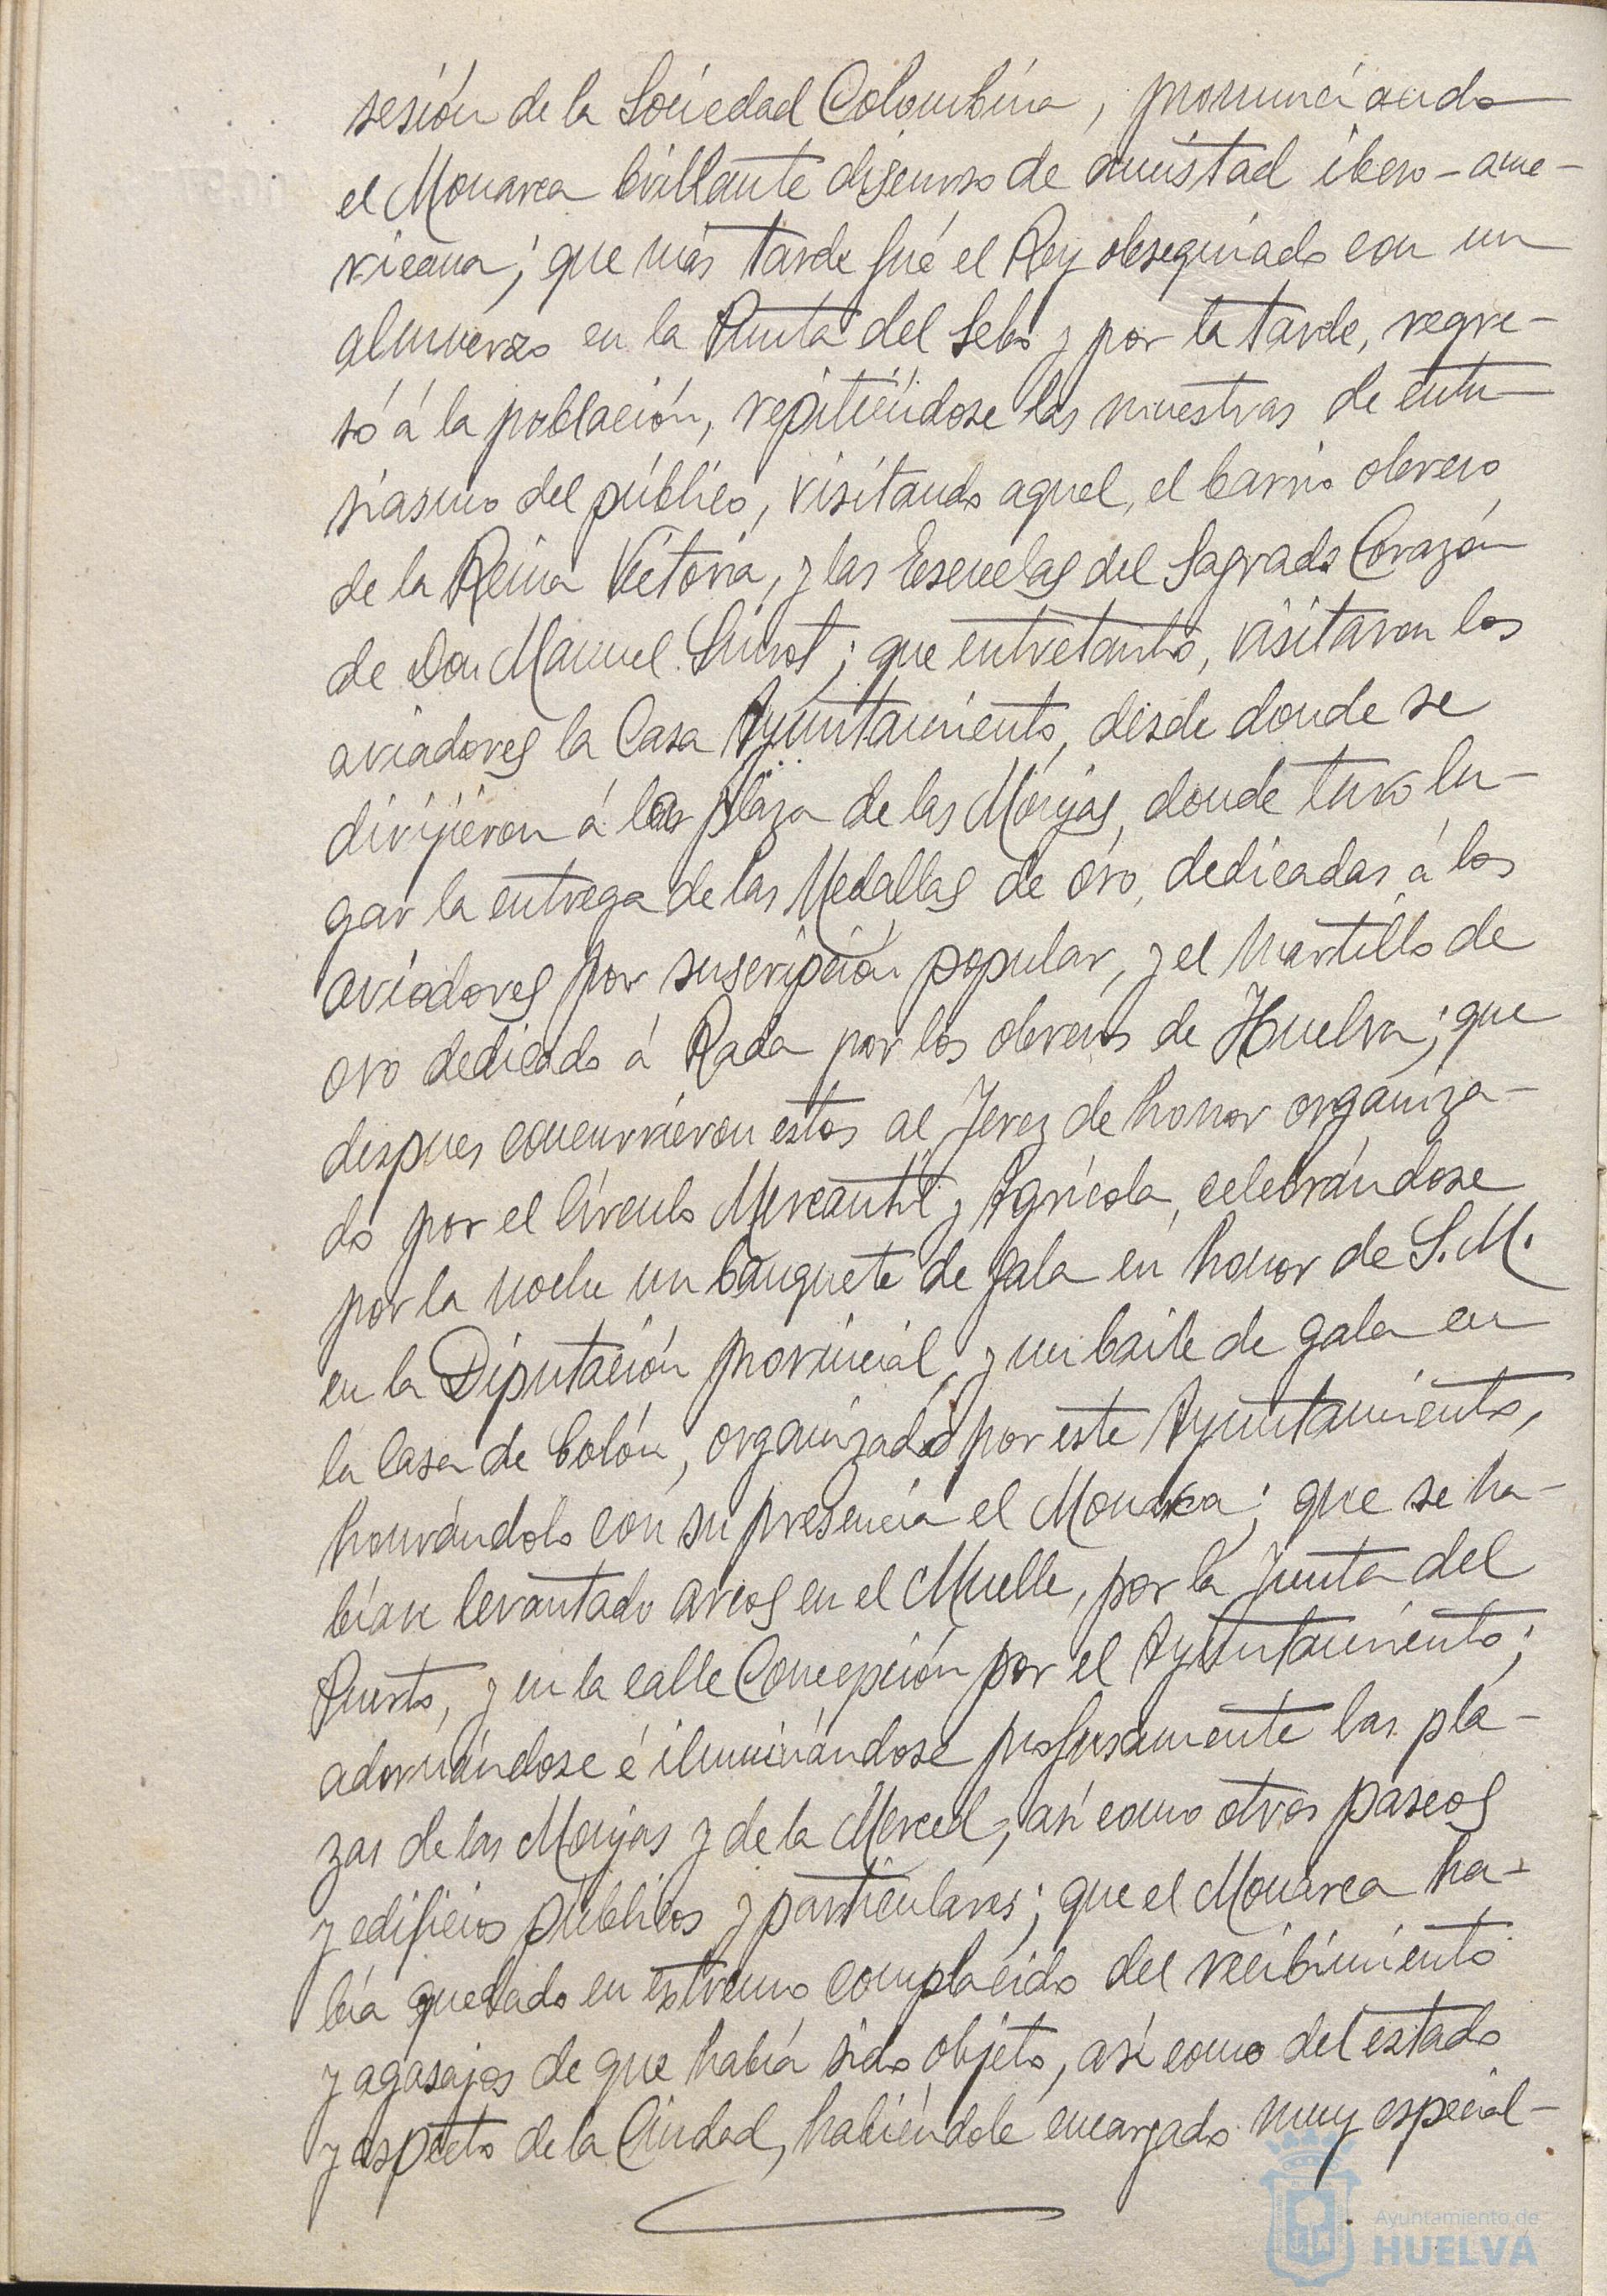 sesión de la Sociedad Colombina, pronunciando
el Monarca brillante discurso de amistad ibero-ame-
ricana; que más tarde fué el Rey obsequiado con un
almuerzo en la Punta del Sebo y por la tarde, regre-
só á la población, repitiéndose las muestras de entu-
siasmo del público, visitando aquel, el barrio obrero
de la Reina Victoria, y las Escuelas del Sagrado Corazón
de Don Manuel Siurot; que entretanto, visitaron los
aviadores la Casa Ayuntamiento, desde donde se
dirijieron á la plaza de las Monjas, donde tuvo lu-
gar la entrega de las Medallas de oro, dedicadas á los
aviadores por suscripción popular, y el martillo de
oro dedicado á Rada por los obreros de Huelva; que
despues concurrieron estos al Jerez de honor organiza-
do por el Círculo Mercantil y Agrícola, celebrándose
por la noche un banquete de gala en honor de S. M.
en la Diputación provincial, y un baile de gala en
la Casa de Colón, organizado por este Ayuntamiento,
honrándolo con su presencia el Monarca; que se ha-
bían levantado arcos en el Muelle, por la Junta del
Puerto, y en la calle Concepción por el Ayuntamiento;
adornándose é iluminándose profusamente las pla-
zas de las Monjas y de la Merced, así como otros paseos
y edificios públicos y particulares; que el Monarca ha-
bía quedado en extremo complacido del recibimiento
y agasajos de que había sido objeto, así como del estado
y aspecto de la Ciudad, habiéndole encargado muy especial-
Ayuntamiento de
HUELVA